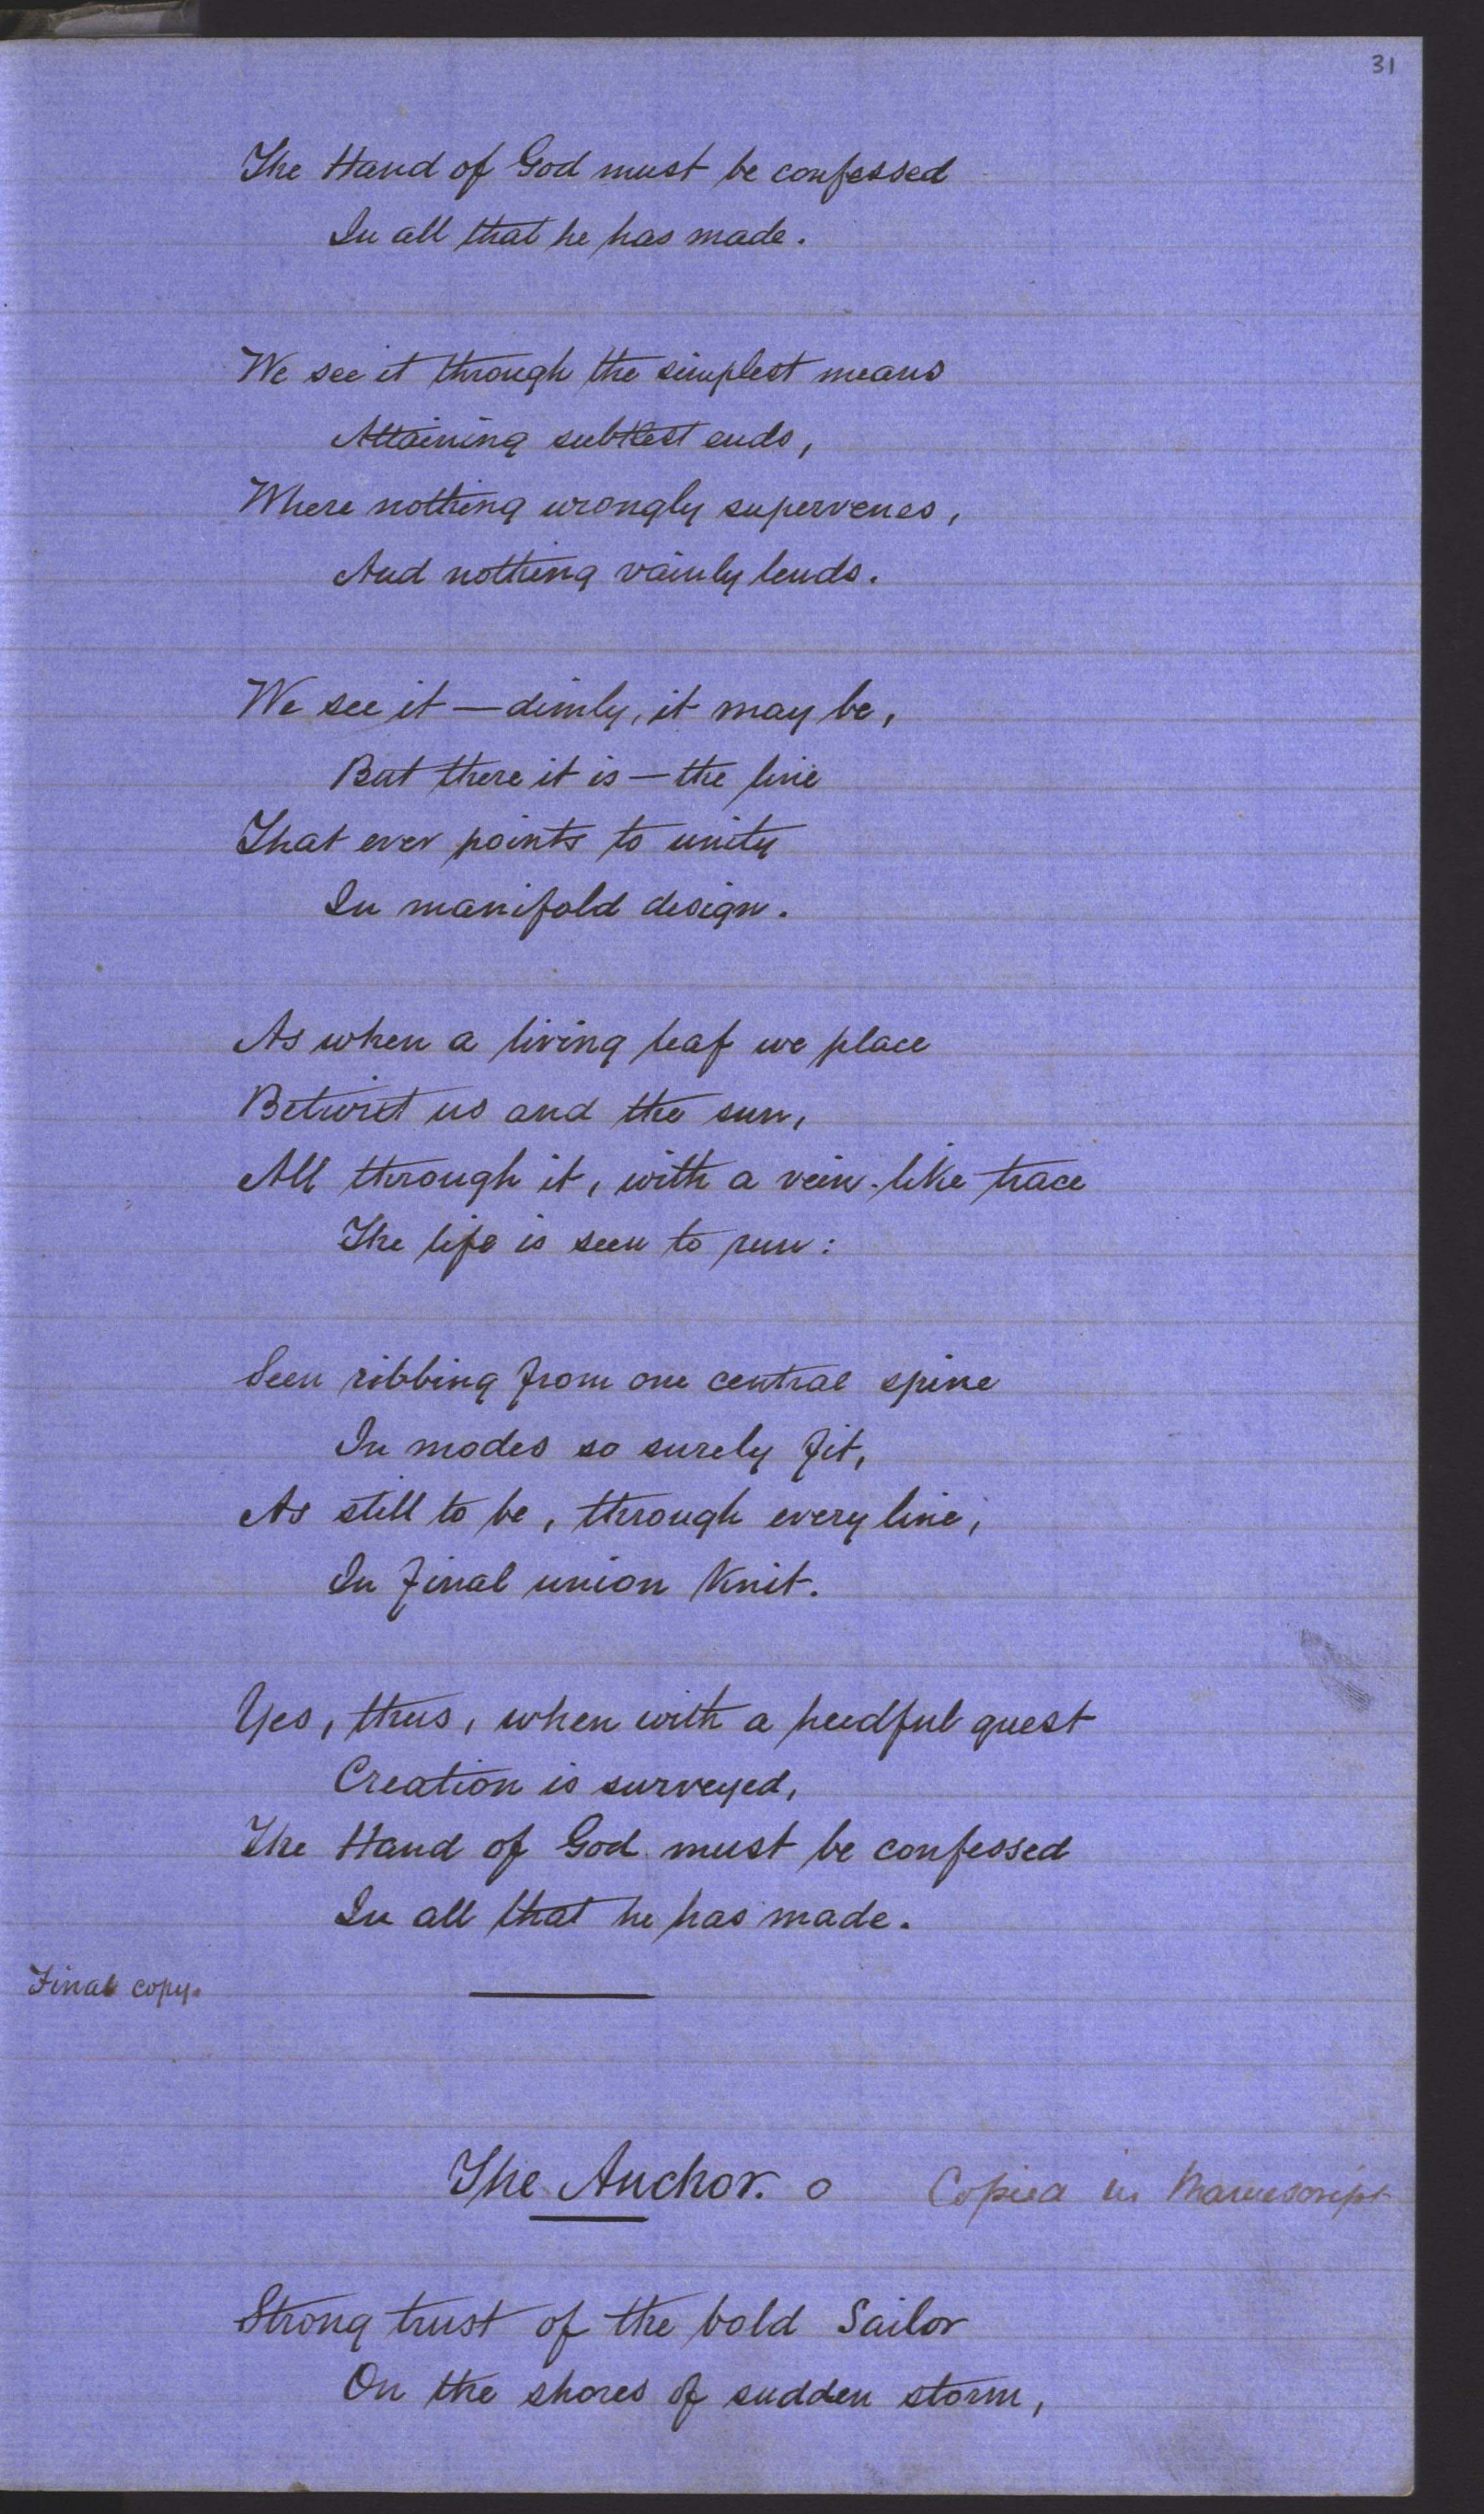 31
The Hand of God must be confessed
In all that he has made.
We see it through the simplest means
Attaining subtlest ends,
Where nothing wrongly supervenes,
And nothing vainly lends.
We see it — dimly, it may be,
But there it is — the line
That ever points to unity
In manifold design.
As when a living leaf we place
Betwixt us and the sun,
All through it, with a vein-like trace
The life is seen to run:
Seen ribbing from one central spine
In modes so surely fit,
As still to be, through every line,
In final union knit.
Yes, thus, when with a heedful quest
Creation is surveyed,
The Hand of God must be confessed
In all that he has made.
Final copy.
The Anchor. o Copied in Manuscript
Strong trust of the bold Sailor
On the shores of sudden storm,